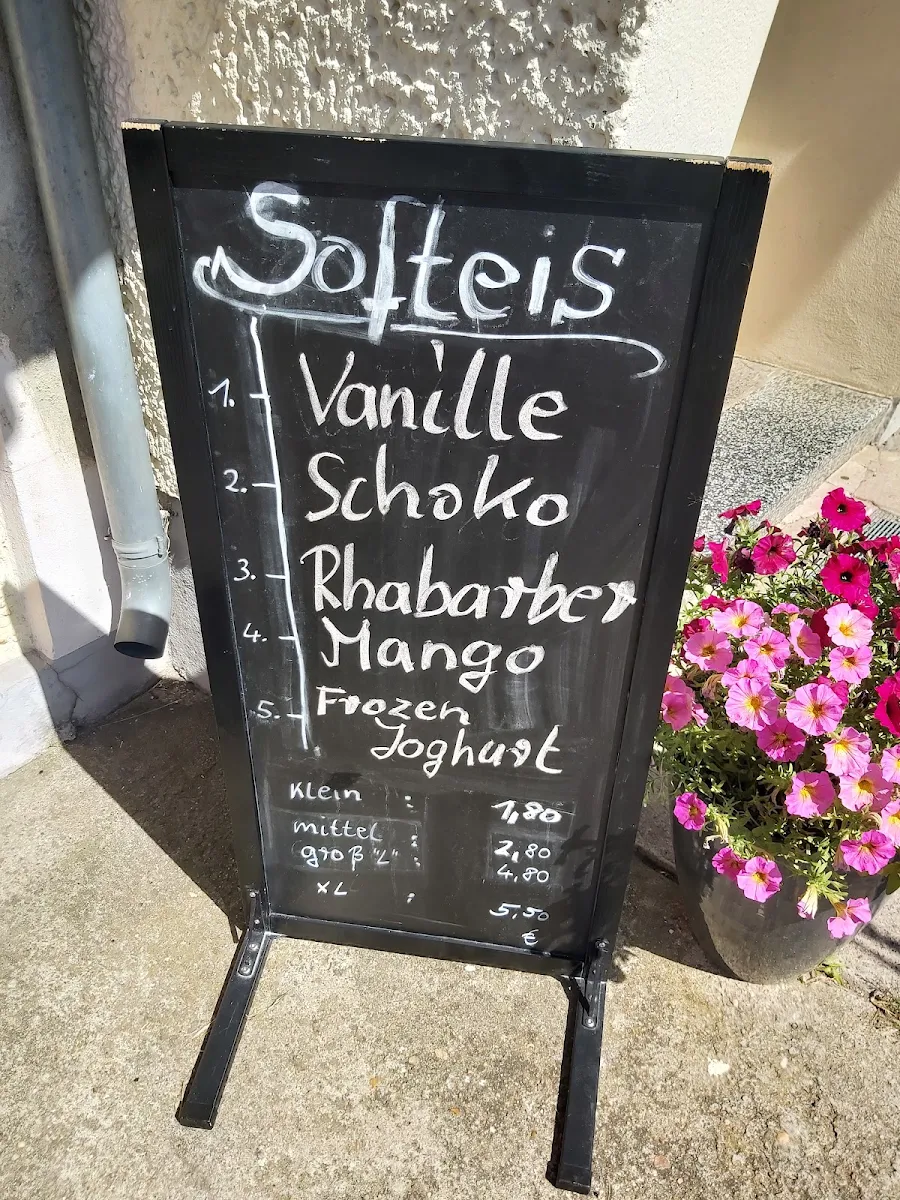 Softeis
1. Vanille
2. Schoko
3. Rhabarber
4. Mango
5. Frozen
Joghurt
Klein : 1,80
mittel : 2,80
groß "L" : 4,80
XL : 5,50
€